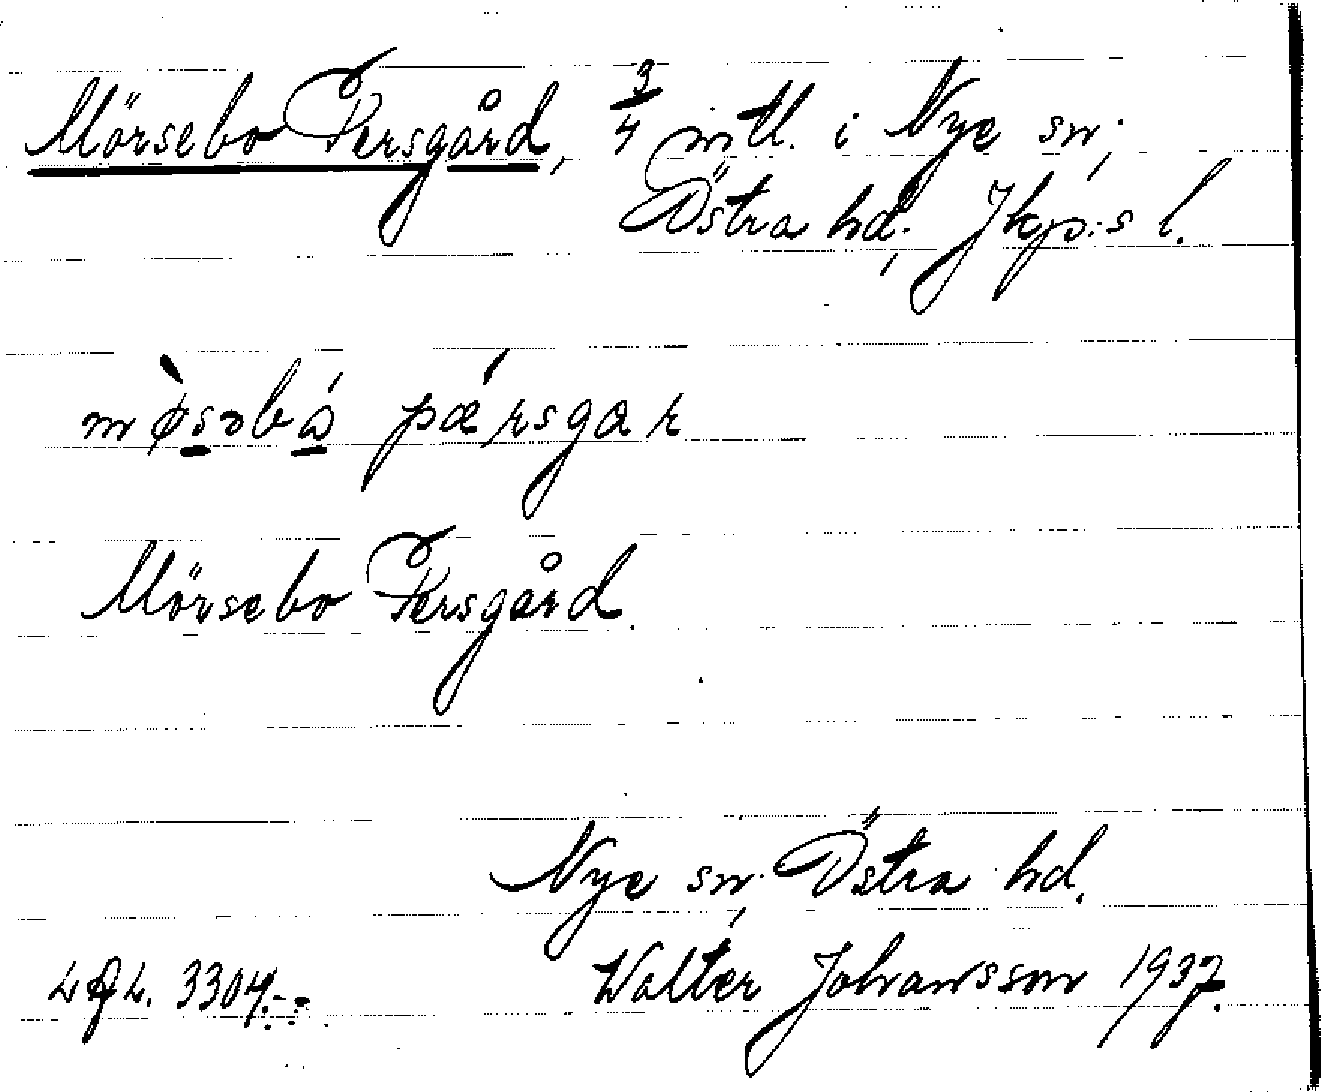 Mörsebo Persgård, 3/4 mtl. i Nye sn.,
Östra hd., Jkp:s l.
pǽrsgar
Mörsebo Persgård.
Nye sn., Östra hd.
3304.
Walter Johansson 1937.